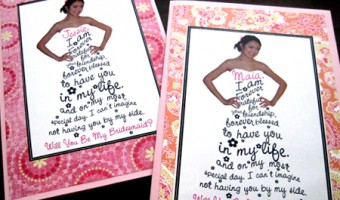 Jessie,
I am
forever
grateful for
our friendship,
forever blessed
to have you
in my life.
and on my most
special day, I can't imagine
not having you by my side.
Will You Be My Bridesmaid?
Maia,
I am
forever
grateful for
our friendship,
forever blessed
to have you
in my life.
and on my most
special day, I can't imagine
not having you by my side.
Will You Be My Bridesmaid?